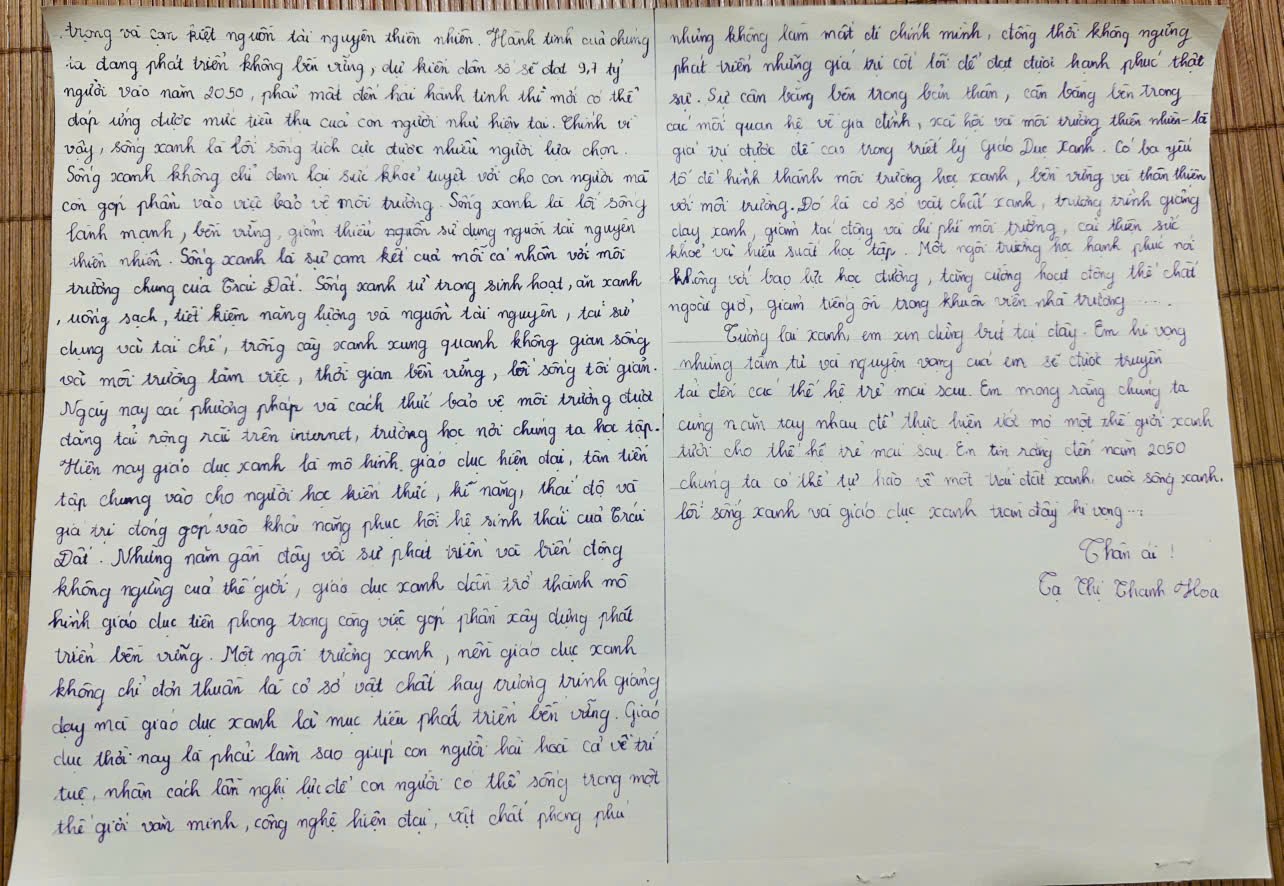 trọng và cạn kiệt nguồn tài nguyên thiên nhiên. Hành tinh của chúng
ta đang phát triển không bền vững, dự kiến dân số sẽ đạt 9,7 tỷ
người vào năm 2050, phải mất đến hai hành tinh thì mới có thể
đáp ứng được mức tiêu thụ của con người như hiện tại. Chính vì
vậy, sống xanh là lối sống tích cực được nhiều người lựa chọn.
Sống xanh không chỉ đem lại sức khoẻ tuyệt vời cho con người mà
còn góp phần vào việc bảo vệ môi trường. Sống xanh là lối sống
lành mạnh, bền vững, giảm thiểu nguồn sử dụng nguồn tài nguyên
thiên nhiên. Sống xanh là sự cam kết của mỗi cá nhân với môi
trường chung của Trái Đất. Sống xanh từ trong sinh hoạt, ăn xanh
, uống sạch, tiết kiệm năng lượng và nguồn tài nguyên, tái sử
dụng và tái chế, trồng cây xanh xung quanh không gian sống
và môi trường làm việc, thời gian bền vững, lối sống tối giản.
Ngày nay các phương pháp và cách thức bảo vệ môi trường được
đăng tải rộng rãi trên internet, trường học nơi chúng ta học tập.
Hiện nay giáo dục xanh là mô hình giáo dục hiện đại, tân tiến
tập chung vào cho người học kiến thức, kĩ năng, thái độ và
giá trị đóng góp vào khả năng phục hồi hệ sinh thái của Trái
Đất. Những năm gần đây với sự phát triển và biến động
không ngừng của thế giới, giáo dục xanh dần trở thành mô
hình giáo dục tiên phong trong công việc góp phần xây dựng phát
triển bền vững. Một ngôi trường xanh, nền giáo dục xanh
không chỉ đơn thuần là cơ sở vật chất hay trương trình giảng
dạy mà giáo dục xanh là mục tiêu phát triển bền vững. Giáo
dục thời nay là phải làm sao giúp con người hài hoà cả về trí
tuệ, nhân cách lẫn nghị lực để con người có thể sống trong một
thế giới văn minh, công nghệ hiện đại, vật chất phong phú
nhưng không làm mất đi chính mình, đồng thời không ngừng
phát triển những giá trị cốt lõi để đạt được hạnh phúc thật
sự. Sự cân bằng bên trong bản thân, cân bằng bên trong
các mối quan hệ về gia đình, xã hội và môi trường thiên nhiên - là
giá trị được đề cao trong triết lý Giáo Dục Xanh. Có ba yếu
tố để hình thành môi trường học xanh, bền vững và thân thiện
với môi trường. Đó là cơ sở vật chất xanh, trương trình giảng
dạy xanh, giảm tác động và chi phí môi trường, cải thiện sức
khoẻ và hiệu suất học tập. Một ngôi trường học hạnh phúc nói
không với bạo lực học đường, tăng cường hoạt động thể chất
ngoài giờ, giảm tiếng ồn trong khuôn viên nhà trường .....
Tương lai xanh, em xin dừng bút tại đây. Em hi vọng
những tâm tư và nguyện vọng của em sẽ được truyền
tải đến các thế hệ trẻ mai sau. Em mong rằng chúng ta
cùng nắm tay nhau để thực hiện ước mơ một thế giới xanh
tươi cho thế hệ trẻ mai sau. Em tin rằng đến năm 2050
chúng ta có thể tự hào về một trái đất xanh, cuộc sống xanh,
lối sống xanh và giáo dục xanh tràn đầy hi vọng ...
Thân ái !
Tạ Thị Thanh Hoa